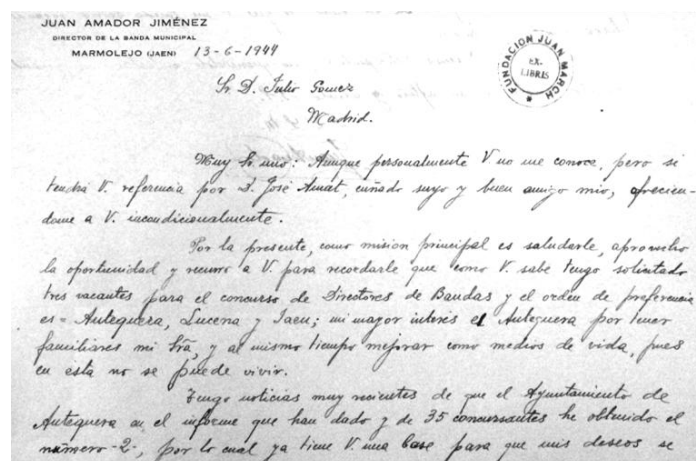 JUAN AMADOR JIMÉNEZ
DIRECTOR DE LA BANDA MUNICIPAL
MARMOLEJO (JAEN) 13-6-1944
FUNDACION JUAN MARCH
EX-LIBRIS
Sr. D. Julio Gomez
Madrid.
Muy Sr. mio: Aunque personalmente V no me conoce, pero si
tendrá V. referencia por D. José Amat, cuñado suyo y buen amigo mio, ofrecien-
dome a V. incondicionalmente.
Por la presente, como mision principal es saludarle, aprovecho
la oportunidad y recurro a V. para recordarle que como V. sabe tengo solicitado
tres vacantes para el concurso de Directores de Bandas y el orden de preferencia
es = Antequera, Lucena y Jaen; mi mayor interés es Antequera por tener
familiares mi Sra, y al mismo tiempo mejorar como medios de vida, pues
en esta no se puede vivir.
Tengo noticias muy recientes de que el Ayuntamiento de
Antequera en el informe que han dado y de 35 concursantes he obtenido el
número -2-, por lo cual ya tiene V. una base para que mis deseos se